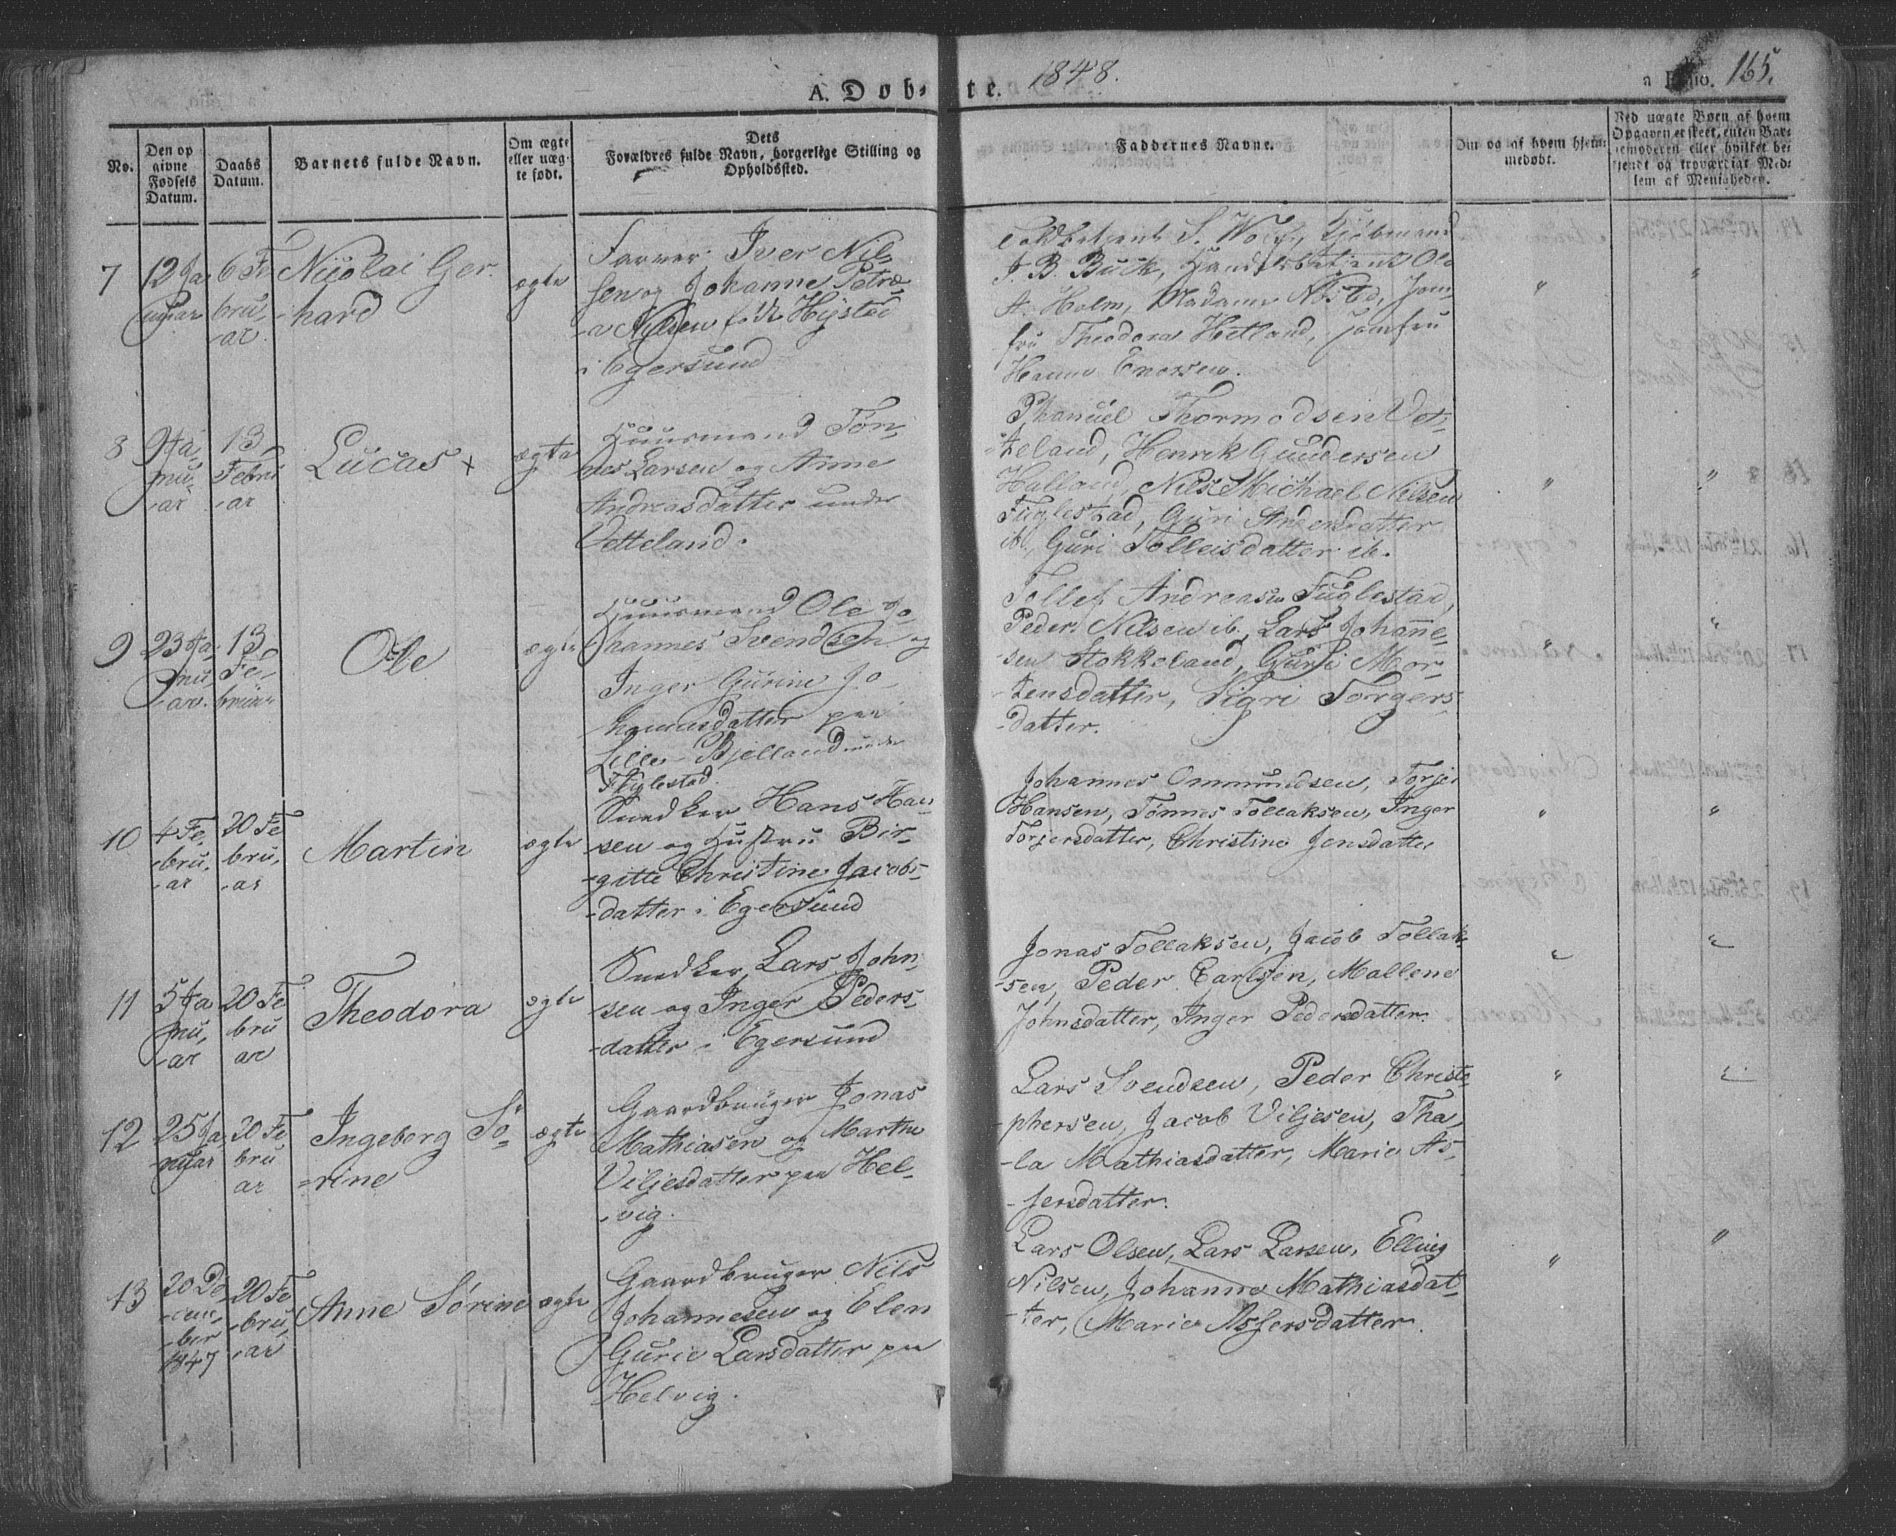 A. Døb-te. 1848.
a Folio. 165.
No.
Den op
givne
Fødsels
Datum.
Daabs
Datum.
Barnets fulde Navn.
Om ægte
eller uæg-
te født.
Dets
Forældres fulde Navn, borgerlige Stilling og
Opholdssted.
Faddernes Navne.
Om og af hvem hjem-
medøbt.
Ved uægte Børn af hvem
Opgaven er skeet, enten Bar-
nemoderen eller hvilket be-
kjendt og troværdigt Med-
lem af Menigheden.
7
12 Ja
nuar
6 Fe
bru,
-ar.
Nicolai Ger-
hard
ægte
Farver Iver Nil-
sen og Johanne Petre-
a Nilsen født Hystad
i Egersund
Toldbetjent S. Wolf, Kjøbmand
J. B. Buck, Handelsbetjent Ole
A. Holm, Madame Nøsted, Jom-
fru Theodora Hetland, jomfru
Hanne Enersen.
"
"
8
9 Ja-
nu-
-ar
13
Febru
-ar
Lucas +
ægte
Huusmand Tøn-
nes Larsen og Anne
Andreasdatter under
Vetteland.
Phanuel Thormodsen Vet-
teland, Henrik Gundersen
Halland, Nils Michael Nilsen
Fuglestad, Guri Andersdatter
ib, Guri Tolleisdatter ib.
"
"
9
23 Ja-
nu,
-ar.
13
Fe-
bruar
Ole
ægte
Huusmand Ole Jo
hannes Svendsen og
Inger Gurine Jo-
hannesdatter paa
Lille-Bjelland under
Fuglestad.
Tollef Andreasen Fuglestad,
Peder Nilsen ib, Lars Johanne-
sen Stokkeland, Guri Mor-
tensdatter, Sigri Torgers-
-datter.
"
"
10
4 Fe-
-bru,
-ar
20 Fe
bru,
-ar
Martin
ægte
Snedker Hans Han-
sen og Hustru Bir-
-gitte Christine Jacobs-
-datter i Egersund
Johannes Ommundsen, Torjer
Hansen, Tønnes Tollaksen, Inger
Torjersdatter, Christine Jensdatter
"
"
11
5 Ja
nu,
-ar
20 Fe
bru
ar
Theodora
ægte
Snedker Lars John-
sen og Inger Peders-
-datter i Egersund
Jonas Tollaksen, Jacob Tollak-
-sen, Peder Carlsen, Mallene
Johnsdatter, Inger Pedersdatter.
"
"
12
25 Ja-
nuar
20 Fe,
bru
ar
Ingeborg Sø-
-rine
ægte
Gaardbruger Jonas
Mathiasen og Marthe
Viljesdatter paa Hel-
-vig.
Lars Svendsen, Peder Christo-
-phersen, Jacob Viljesen, Tha-
-la Mathiasdatter, Marie As-
-sersdatter.
"
"
13
20 De
-cem,
-ber
1847
20 Fe
-bru,
-ar
Anne Sørine
ægte
Gaardbruger Nils
Johannesen og Elen
Gurie Larsdatter paa
Helvig.
Lars Olsen, Lars Larsen, Elling
Nilsen, Johanne Mathiasdat-
-ter, Marie Assersdatter.
"
"